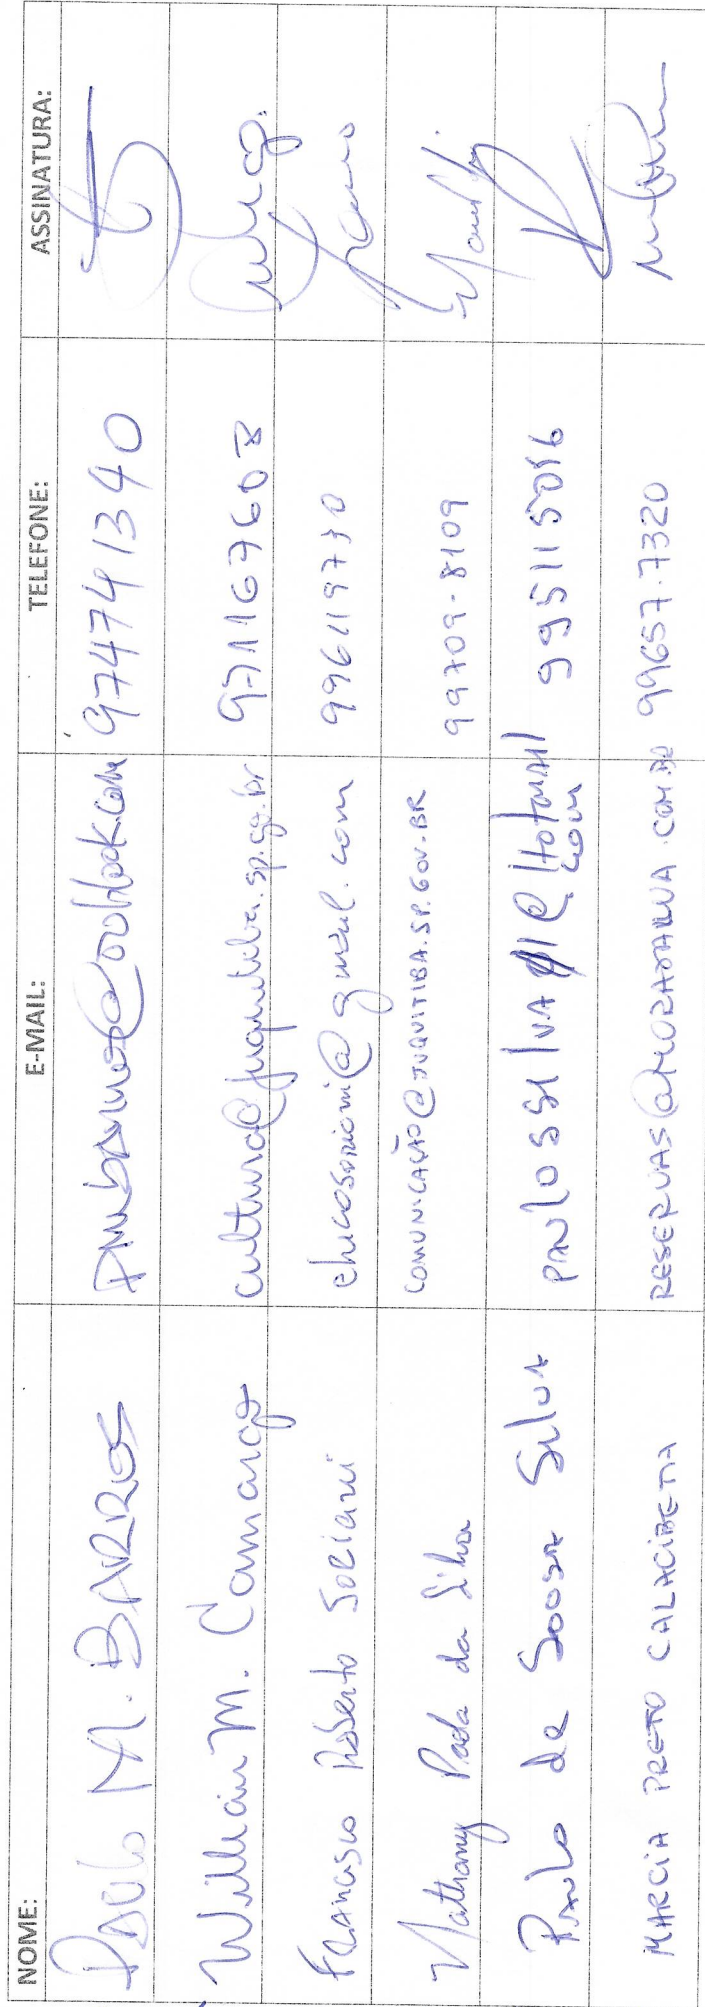 NOME: E-MAIL: TELEFONE: ASSINATURA:
PAULO M. BARROS pmbarros@outlook.com 974741340
Willian M. Camargo cultura@juquitiba.sp.gov.br 971167608
Francisco Roberto Soriani chicosoriani@gmail.com 996119730
Nathany Prada da Silva COMUNICAÇÃO@JUQUITIBA.SP.GOV.BR 99709-8109
Paulo de Souza Silva PAULOSSILVA @Hotmail 995115016
com
MARCIA PRETO CALACIBETTA 99657-7320